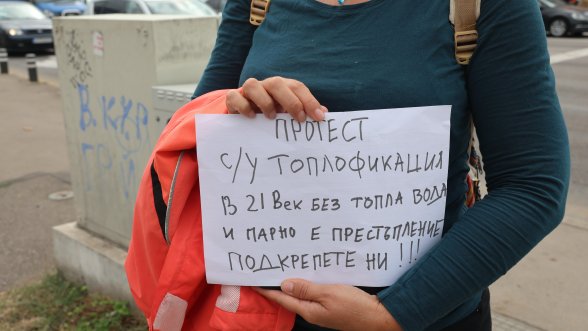 ПРОТЕСТ
С/У ТОПЛОФИКАЦИЯ
В 21 ВЕК БЕЗ ТОПЛА ВОДА
И ПАРНО Е ПРЕСТЪПЛЕНИЕ
ПОДКРЕПЕТЕ НИ !!!